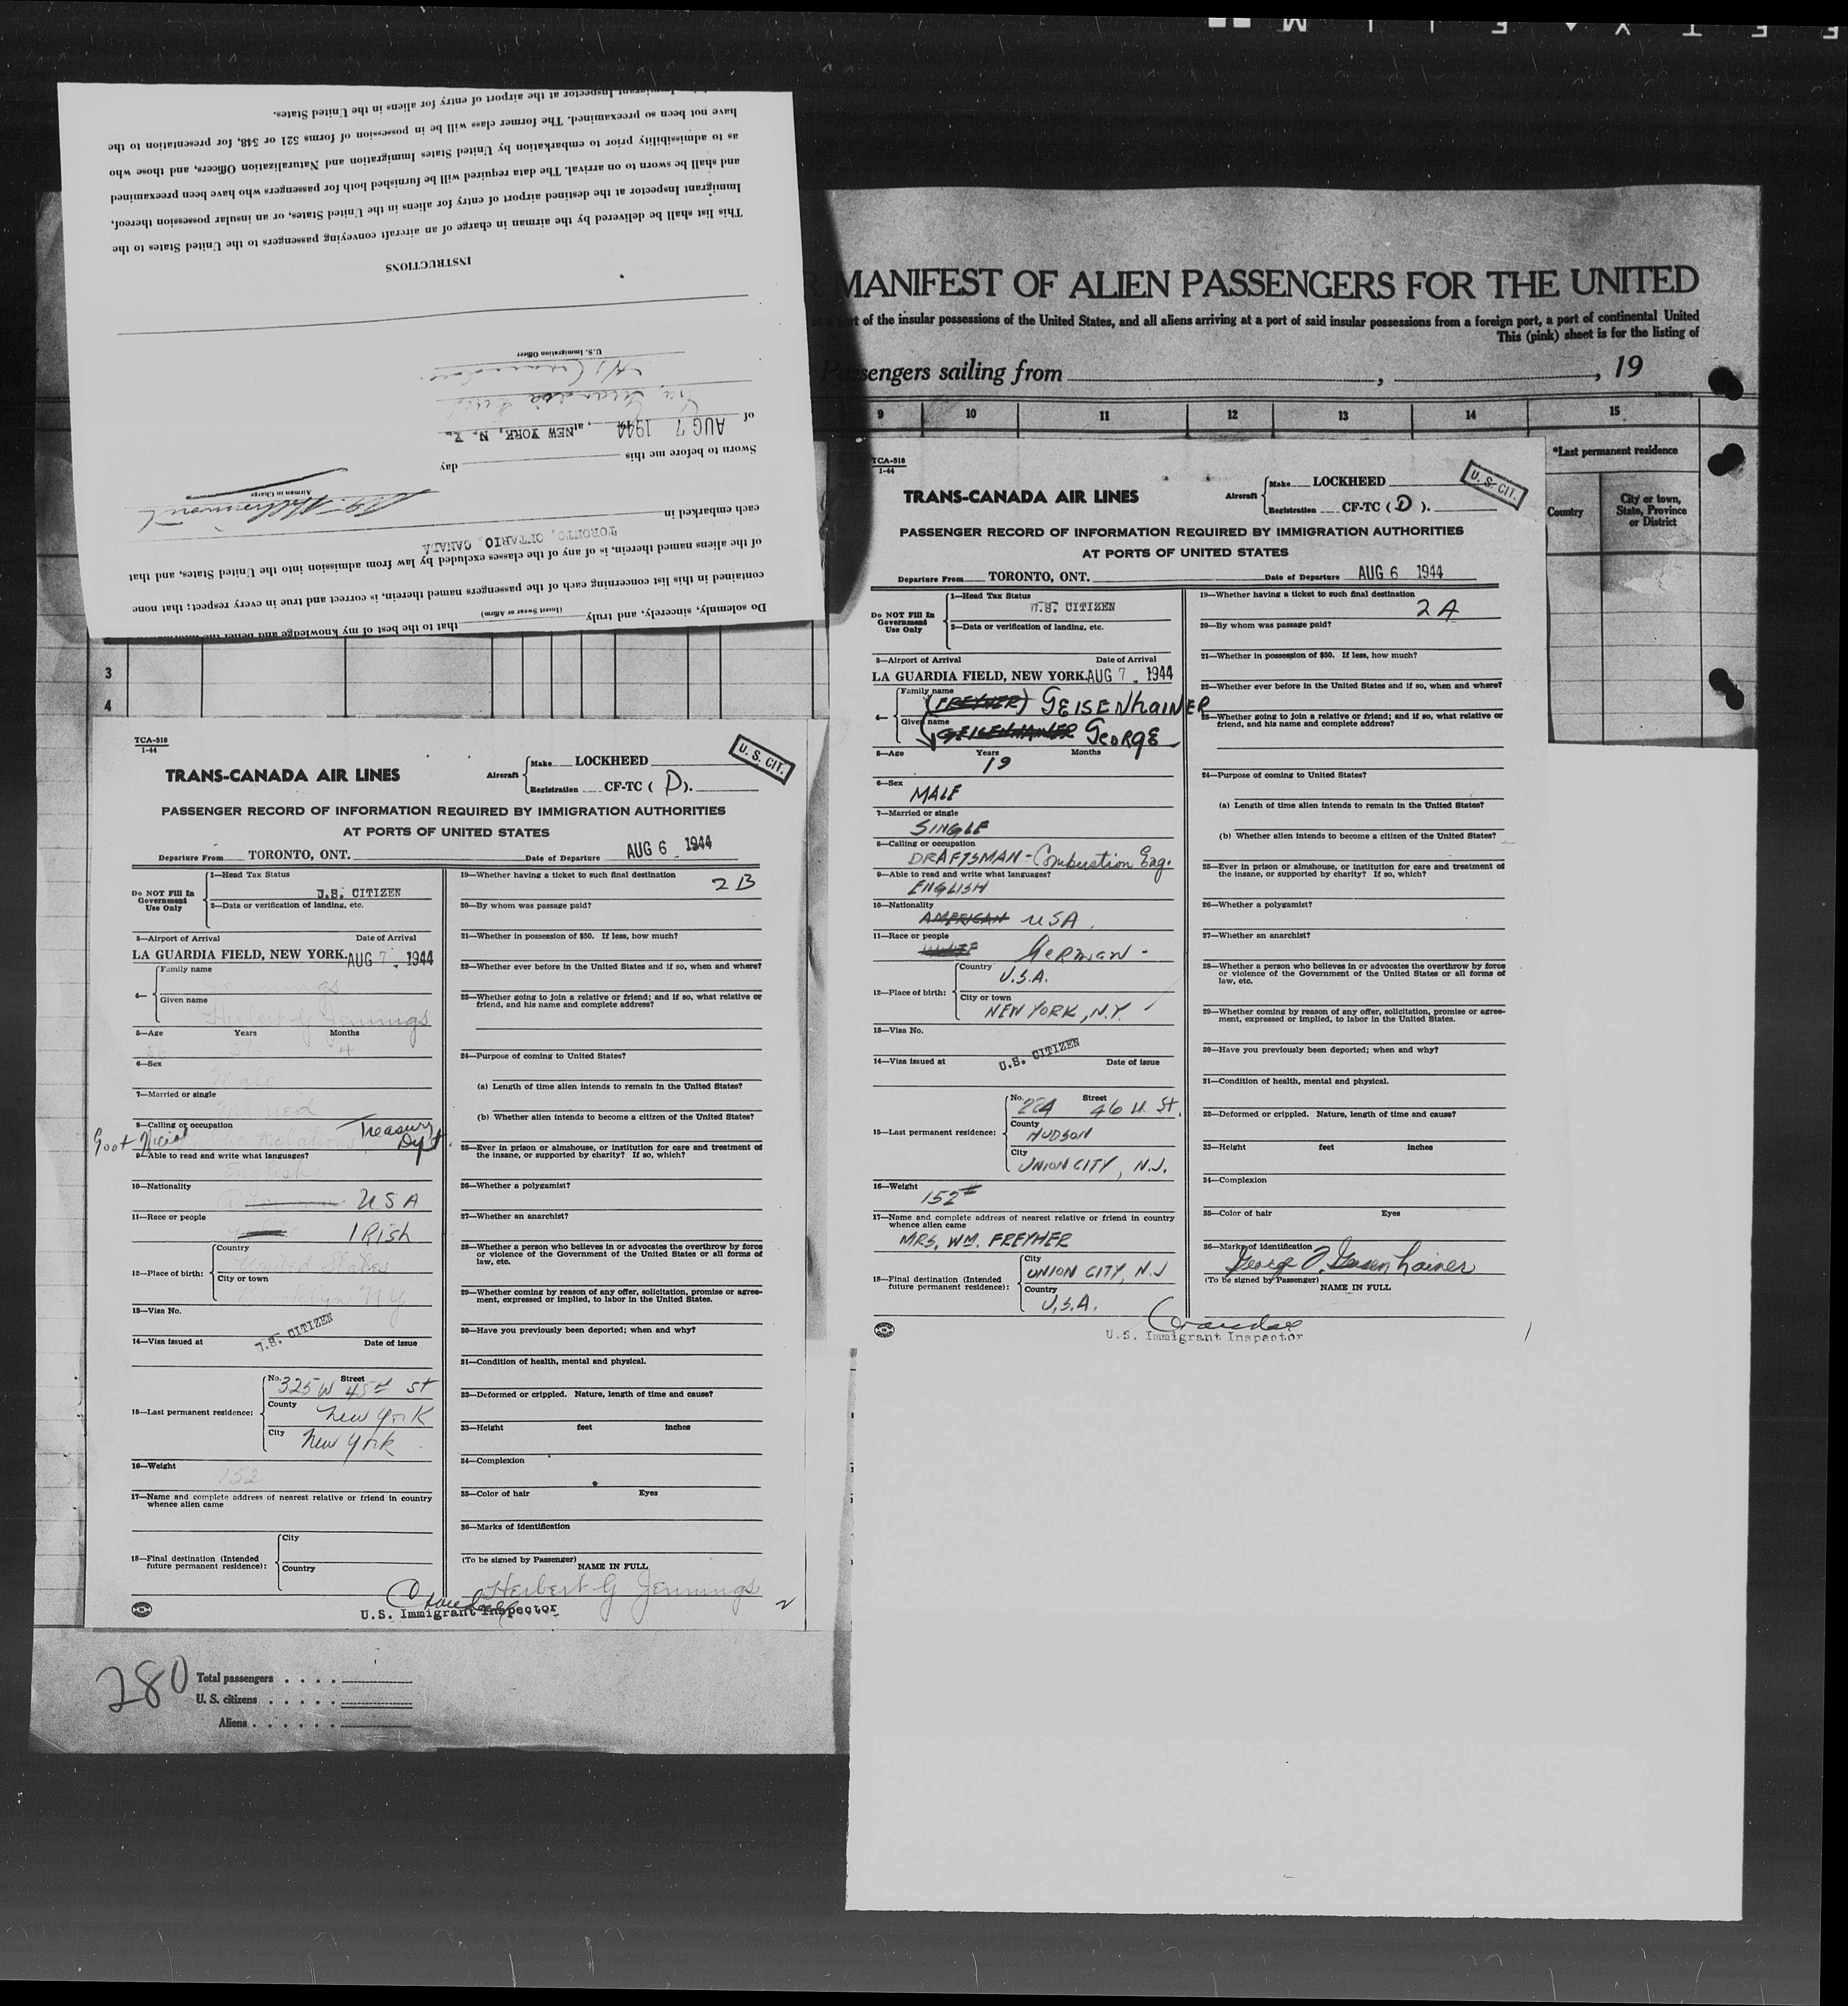 SAFETY FILM
Immigrant Inspector at the airport of entry for aliens in the United States.
have not been so preexamined. The former class will be in possession of forms 521 or 548, for presentation to the
as to admissibility prior to embarkation by United States Immigration and Naturalization Officers, and those who
and shall be sworn to on arrival. The data required will be furnished both for passengers who have been preexamined
Immigrant Inspector at the destined airport of entry for aliens in the United States, or an insular possession thereof,
This list shall be delivered by the airman in charge of an aircraft conveying passengers to the United States to the
INSTRUCTIONS
U. S. Immigration Officer
of AUG 7 1944, at NEW YORK, N. Y.
Sworn to before me this day
Airman in Charge
each embarked in TORONTO, ONTARIO, CANADA
of the aliens named therein, is of any of the classes excluded by law from admission into the United States, and that
contained in this list concerning each of the passengers named therein, is correct and true in every respect; that none
Do solemnly, sincerely, and truly (Insert Swear or Affirm) that to the best of my knowledge and belief the
MANIFEST OF ALIEN PASSENGERS FOR THE UNITED
of the insular possessions of the United States, and all aliens arriving at a port of said insular possessions from a foreign port, a port of continental United
This (pink) sheet is for the listing of
Passengers sailing from , , 19
9 10 11 12 13 14 15
*Last permanent residence
Country
City or town, State, Province or District
3
4
TCA-518
1-44
TRANS-CANADA AIR LINES
Aircraft
Make LOCKHEED
Registration CF-TC ( D ).
U. S. CIT.
PASSENGER RECORD OF INFORMATION REQUIRED BY IMMIGRATION AUTHORITIES
AT PORTS OF UNITED STATES
Departure From TORONTO, ONT. Date of Departure AUG 6 1944
Do NOT Fill In
Government
Use Only
1—Head Tax Status
U.S. CITIZEN
2—Data or verification of landing, etc.
3—Airport of Arrival Date of Arrival
LA GUARDIA FIELD, NEW YORK. AUG 7 1944
4—
Family name
Given name
Herbert G Jennings
5—Age Years Months
4
6—Sex
Male
7—Married or single
Married
8—Calling or occupation
Treasury Dept.
9—Able to read and write what languages?
English
10—Nationality
USA
11—Race or people
IRish
12—Place of birth:
Country
United States
City or town
Brooklyn NY
13—Visa No.
14—Visa issued at U.S. CITIZEN Date of issue
15—Last permanent residence:
No. 325 W Street 45th St
County New York
City New York
16—Weight
152
17—Name and complete address of nearest relative or friend in country
whence alien came
18—Final destination (Intended
future permanent residence):
City
Country
19—Whether having a ticket to such final destination
2 B
20—By whom was passage paid?
21—Whether in possession of $50. If less, how much?
22—Whether ever before in the United States and if so, when and where?
23—Whether going to join a relative or friend; and if so, what relative or
friend, and his name and complete address?
24—Purpose of coming to United States?
(a) Length of time alien intends to remain in the United States?
(b) Whether alien intends to become a citizen of the United States?
25—Ever in prison or almshouse, or institution for care and treatment of
the insane, or supported by charity? If so, which?
26—Whether a polygamist?
27—Whether an anarchist?
28—Whether a person who believes in or advocates the overthrow by force
or violence of the Government of the United States or all forms of
law, etc.
29—Whether coming by reason of any offer, solicitation, promise or agree-
ment, expressed or implied, to labor in the United States.
30—Have you previously been deported; when and why?
31—Condition of health, mental and physical.
32—Deformed or crippled. Nature, length of time and cause?
33—Height feet inches
34—Complexion
35—Color of hair Eyes
36—Marks of identification
(To be signed by Passenger) NAME IN FULL
Herbert G Jennings
U.S. Immigrant Inspector
2
280
Total passengers
U. S. citizens
Aliens
TCA-518
1-44
TRANS-CANADA AIR LINES
Aircraft
Make LOCKHEED
Registration CF-TC ( D ).
U. S. CIT.
PASSENGER RECORD OF INFORMATION REQUIRED BY IMMIGRATION AUTHORITIES
AT PORTS OF UNITED STATES
Departure From TORONTO, ONT. Date of Departure AUG 6 1944
Do NOT Fill In
Government
Use Only
1—Head Tax Status
U.S. CITIZEN
2—Data or verification of landing, etc.
3—Airport of Arrival Date of Arrival
LA GUARDIA FIELD, NEW YORK. AUG 7 1944
4—
Family name
(FREYHER) GEISENhaiNER
Given name
GEISENHAINER GEORGE
5—Age Years Months
19
6—Sex
MALE
7—Married or single
SINGLE
8—Calling or occupation
DRAFTSMAN - Combustion Eng.
9—Able to read and write what languages?
ENGLISH
10—Nationality
AMERICAN USA.
11—Race or people
WHITE GERMAN -
12—Place of birth:
Country
U.S.A.
City or town
NEW YORK, N.Y.
13—Visa No.
14—Visa issued at U.S. CITIZEN Date of issue
15—Last permanent residence:
No. 224 Street 46th St.
County
HUDSON
City
UNION CITY, N.J.
16—Weight
152#
17—Name and complete address of nearest relative or friend in country
whence alien came
MRS. WM. FREYHER
18—Final destination (Intended
future permanent residence):
City
UNION CITY, N.J
Country
U.S.A.
19—Whether having a ticket to such final destination
2 A
20—By whom was passage paid?
21—Whether in possession of $50. If less, how much?
22—Whether ever before in the United States and if so, when and where?
23—Whether going to join a relative or friend; and if so, what relative or
friend, and his name and complete address?
24—Purpose of coming to United States?
(a) Length of time alien intends to remain in the United States?
(b) Whether alien intends to become a citizen of the United States?
25—Ever in prison or almshouse, or institution for care and treatment of
the insane, or supported by charity? If so, which?
26—Whether a polygamist?
27—Whether an anarchist?
28—Whether a person who believes in or advocates the overthrow by force
or violence of the Government of the United States or all forms of
law, etc.
29—Whether coming by reason of any offer, solicitation, promise or agree-
ment, expressed or implied, to labor in the United States.
30—Have you previously been deported; when and why?
31—Condition of health, mental and physical.
32—Deformed or crippled. Nature, length of time and cause?
33—Height feet inches
34—Complexion
35—Color of hair Eyes
36—Marks of identification
(To be signed by Passenger) NAME IN FULL
U.S. Immigrant Inspector
1